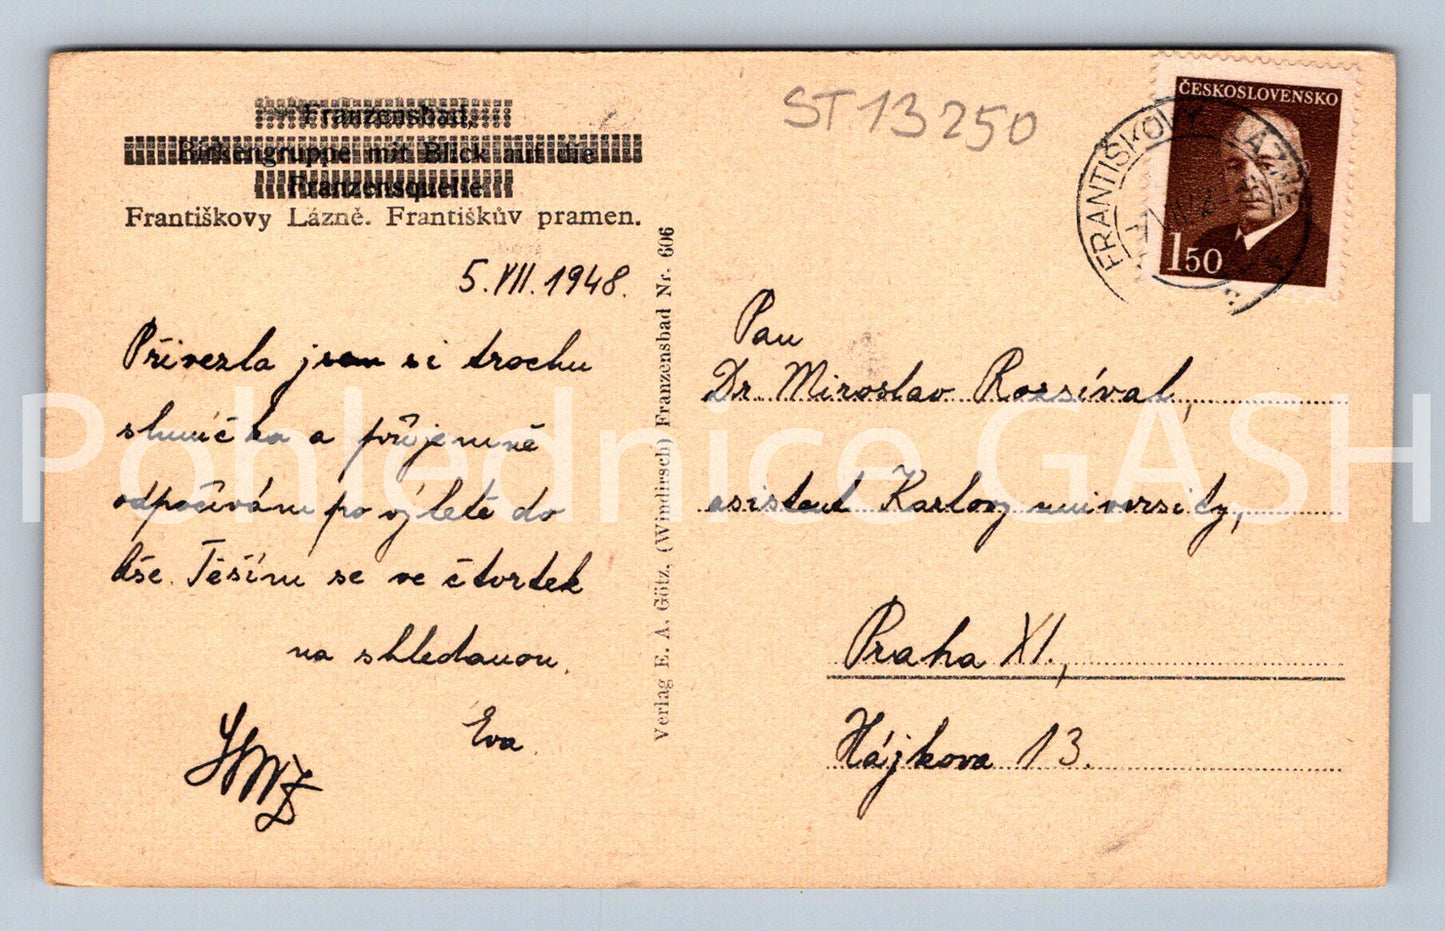 Franzensbad,
Birkengruppe mit Blick auf die
Franzensquelle
Františkovy Lázně. Františkův pramen.
5. VII. 1948.
Přivezla jsem si trochu
sluníčka a příjemně
odpočívám po výletě do
Aše. Těším se ve čtvrtek
na shledanou.
Eva
Verlag E. A. Götz, (Windirsch) Franzensbad Nr. 606
ST 13250
ČESKOSLOVENSKO
1 50
FRANTIŠKOVY LÁZNĚ
Pan
Dr. Miroslav Rozsíval,
asistent Karlovy university,
Praha XI.,
Hájkova 13.
Pohlednice GASH